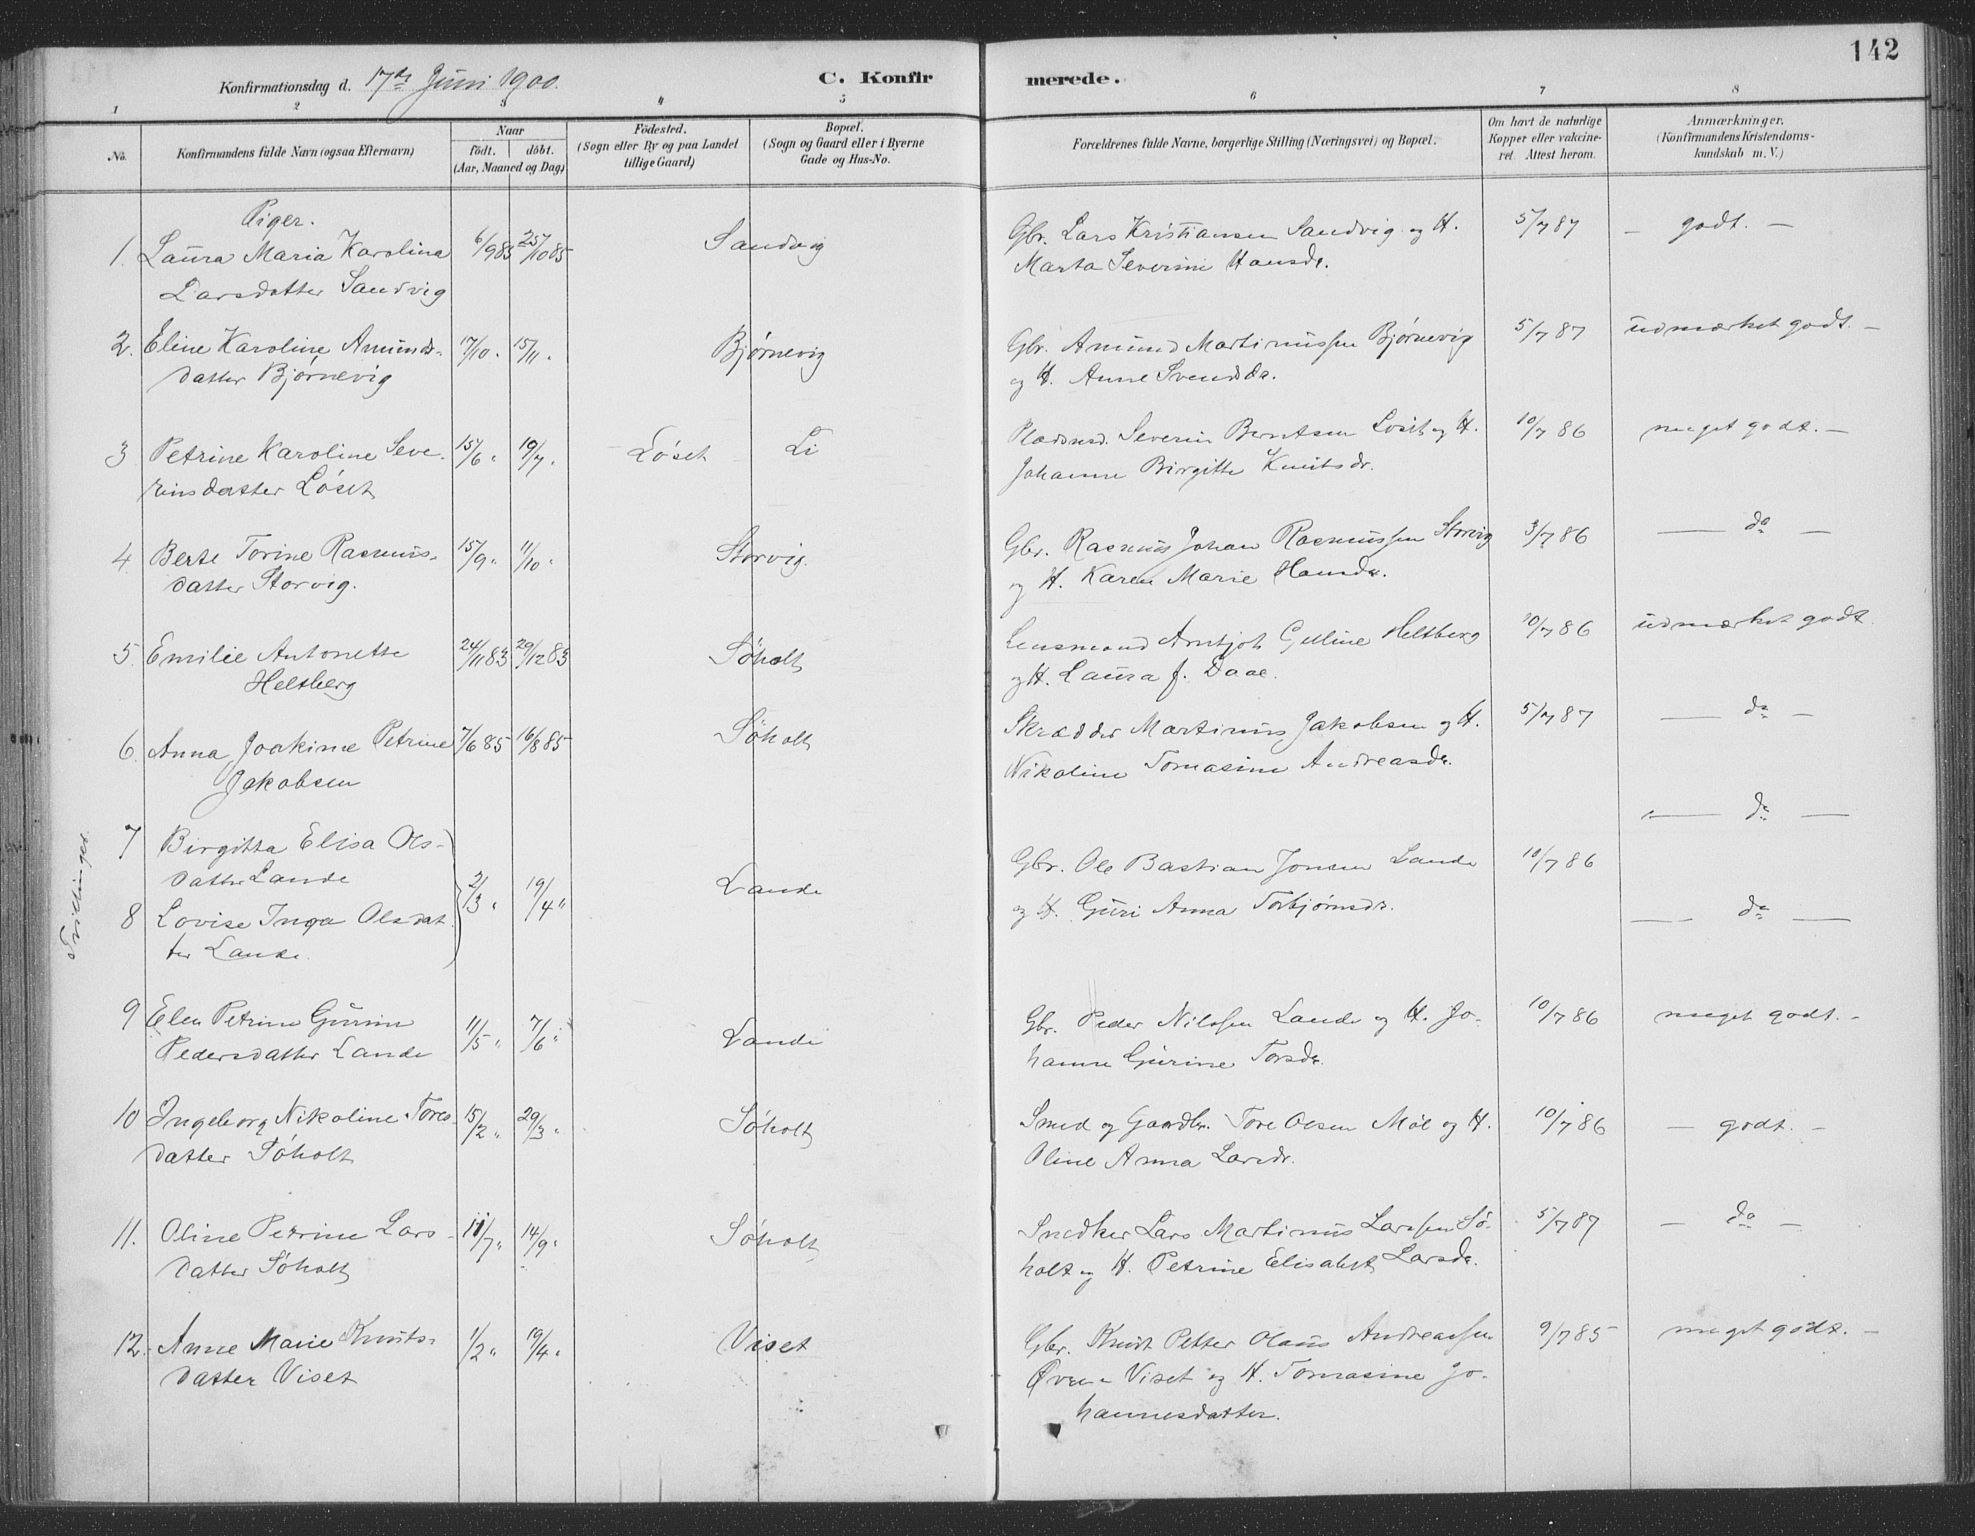 142
Konfirmationsdag d. 17de Juni 1900.
C. Konfirmerede.
1 2 3 4 5 6 7 8
No.
Konfirmandens fulde Navn (ogsaa Efternavn)
Naar
födt. döbt.
(Aar, Maaned og Dag)
Födested.
(Sogn eller By og paa Landet
tillige Gaard)
Bopæl.
(Sogn og Gaard eller i Byerne
Gade og Hus-No.
Forældrenes fulde Navne, borgerlige Stilling (Næringsvei) og Bopæl.
Om havt de naturlige
Kopper eller vakcine-
ret. Attest herom.
Anmærkninger.
(Konfirmandens Kristendoms-
kundskab m. V.)
Piger.
1. Laura Maria Karolina 6/9 85 25/10 85 Sandvig Gbr. Lars Kristiansen Sandvig og H. 5/7 87 – godt. –
Larsdatter Sandvig Marta Severine Hansdr.
2. Eline Karoline Amunds- 17/10 " 15/11 " Bjørnevig Gbr. Amund Martinussen Bjørnevig 5/7 87 udmærket godt. –
datter Bjørnevig og H. Anne Svendsdr.
3 Petrine Karoline Seve- 15/6 " 19/7 " Løset Li Pladsmd. Severin Berntsen Løset og H. 10/7 86 meget godt. –
rinsdatter Løset Johanne Birgitte Knutsdr.
4 Berte Torine Rasmus- 15/9 " 11/10 " Storvig. Gbr. Rasmus Johan Rasmussen Storvig 3/7 86 – do –
datter Storvig. og H. Karen Marie Hansdr.
5. Emilie Antonette 24/11 83 29/12 83 Søholt Lensmand Arntjot Heltberg 10/7 86 udmærket godt.
Heltberg og H. Laura f. Daae.
6. Anna Joakime Petrine 7/6 85 16/8 85 Søholt Skrædder Martinus Jakobsen og H. 5/7 87 – do –
Jakobsen Nikoline Tomasine Andreasdr.
Tvillinger.
7 Birgitta Elisa Ols- – do –
datter Lande 2/3 " 19/4 " Lande Gbr. Ole Bastian Jonsen Lande 10/7 86
8 Lovise Inga Olsdat- og H. Guri Anna Torbjørnsdr. – do –
ter Lande.
9 Elen Petrine Gurine 11/5 " 7/6 " Lande Gbr. Peder Nilssen Lande og H. Jo- 10/7 86 meget godt. –
Pedersdatter Lande hanne Gurine Torsdr.
10 Ingeborg Nikoline Tores- 15/2 " 29/3 " Søholt Smed og Gaardbr. Tore Olsen Møl og H. 10/7 86 – godt. –
datter Søholt Oline Anna Larsdr.
11. Oline Petrine Lars- 11/7 " 14/9 " Søholt Snedker Lars Martinus Larssen Sø- 5/7 87 – do –
datter Søholt holt og H. Petrine Elisabet Larsdr.
12. Anne Marie Knuts- 1/2 " 19/4 " Viset Gbr. Knut Petter Olaus Andreassen 9/7 85 meget godt. –
datter Viset Øvre- Viset og H. Tomasine Jo-
hannesdatter.